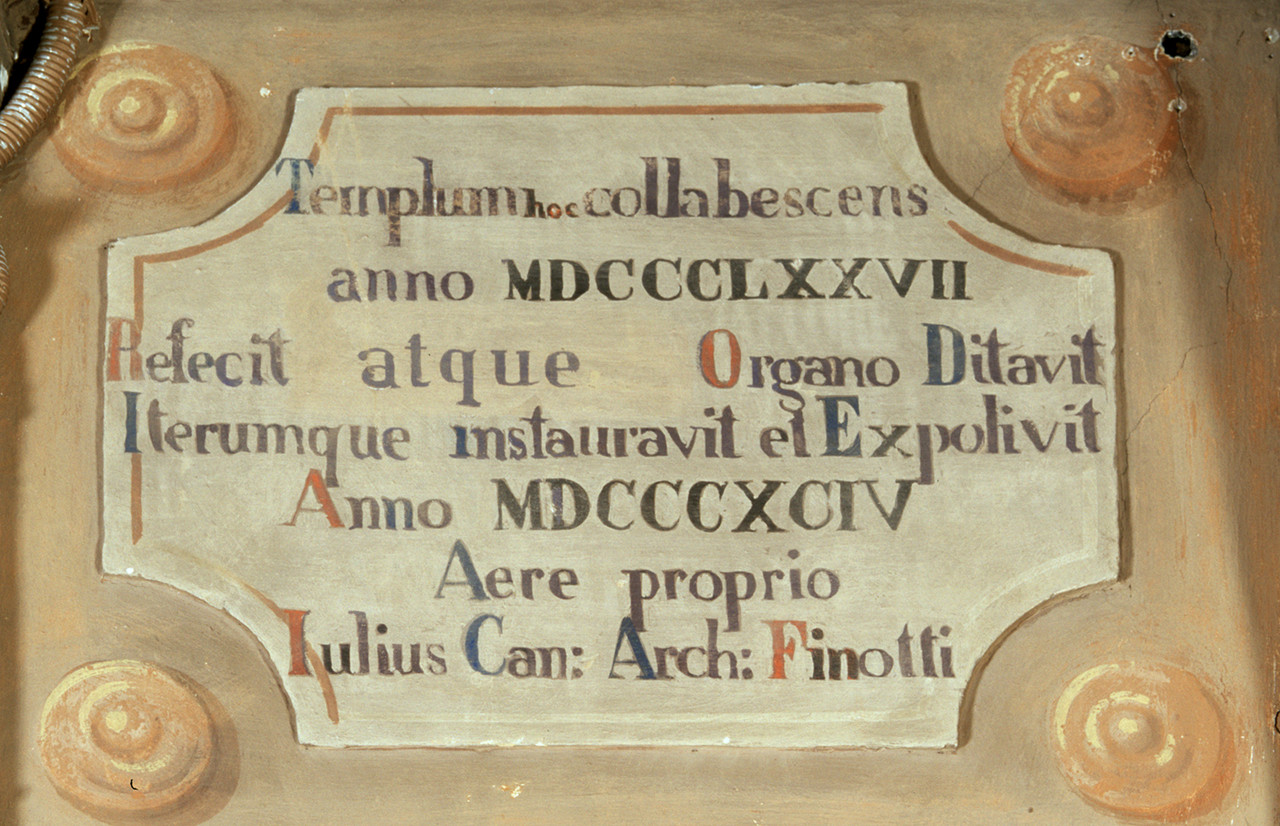 Templum hoc collabescens
anno MDCCCLXXVII
Refecit atque Organo Ditavit
Iterumque instauravit et Expolivit
Anno MDCCCXCIV
Aere proprio
Iulius Can: Arch: Finotti